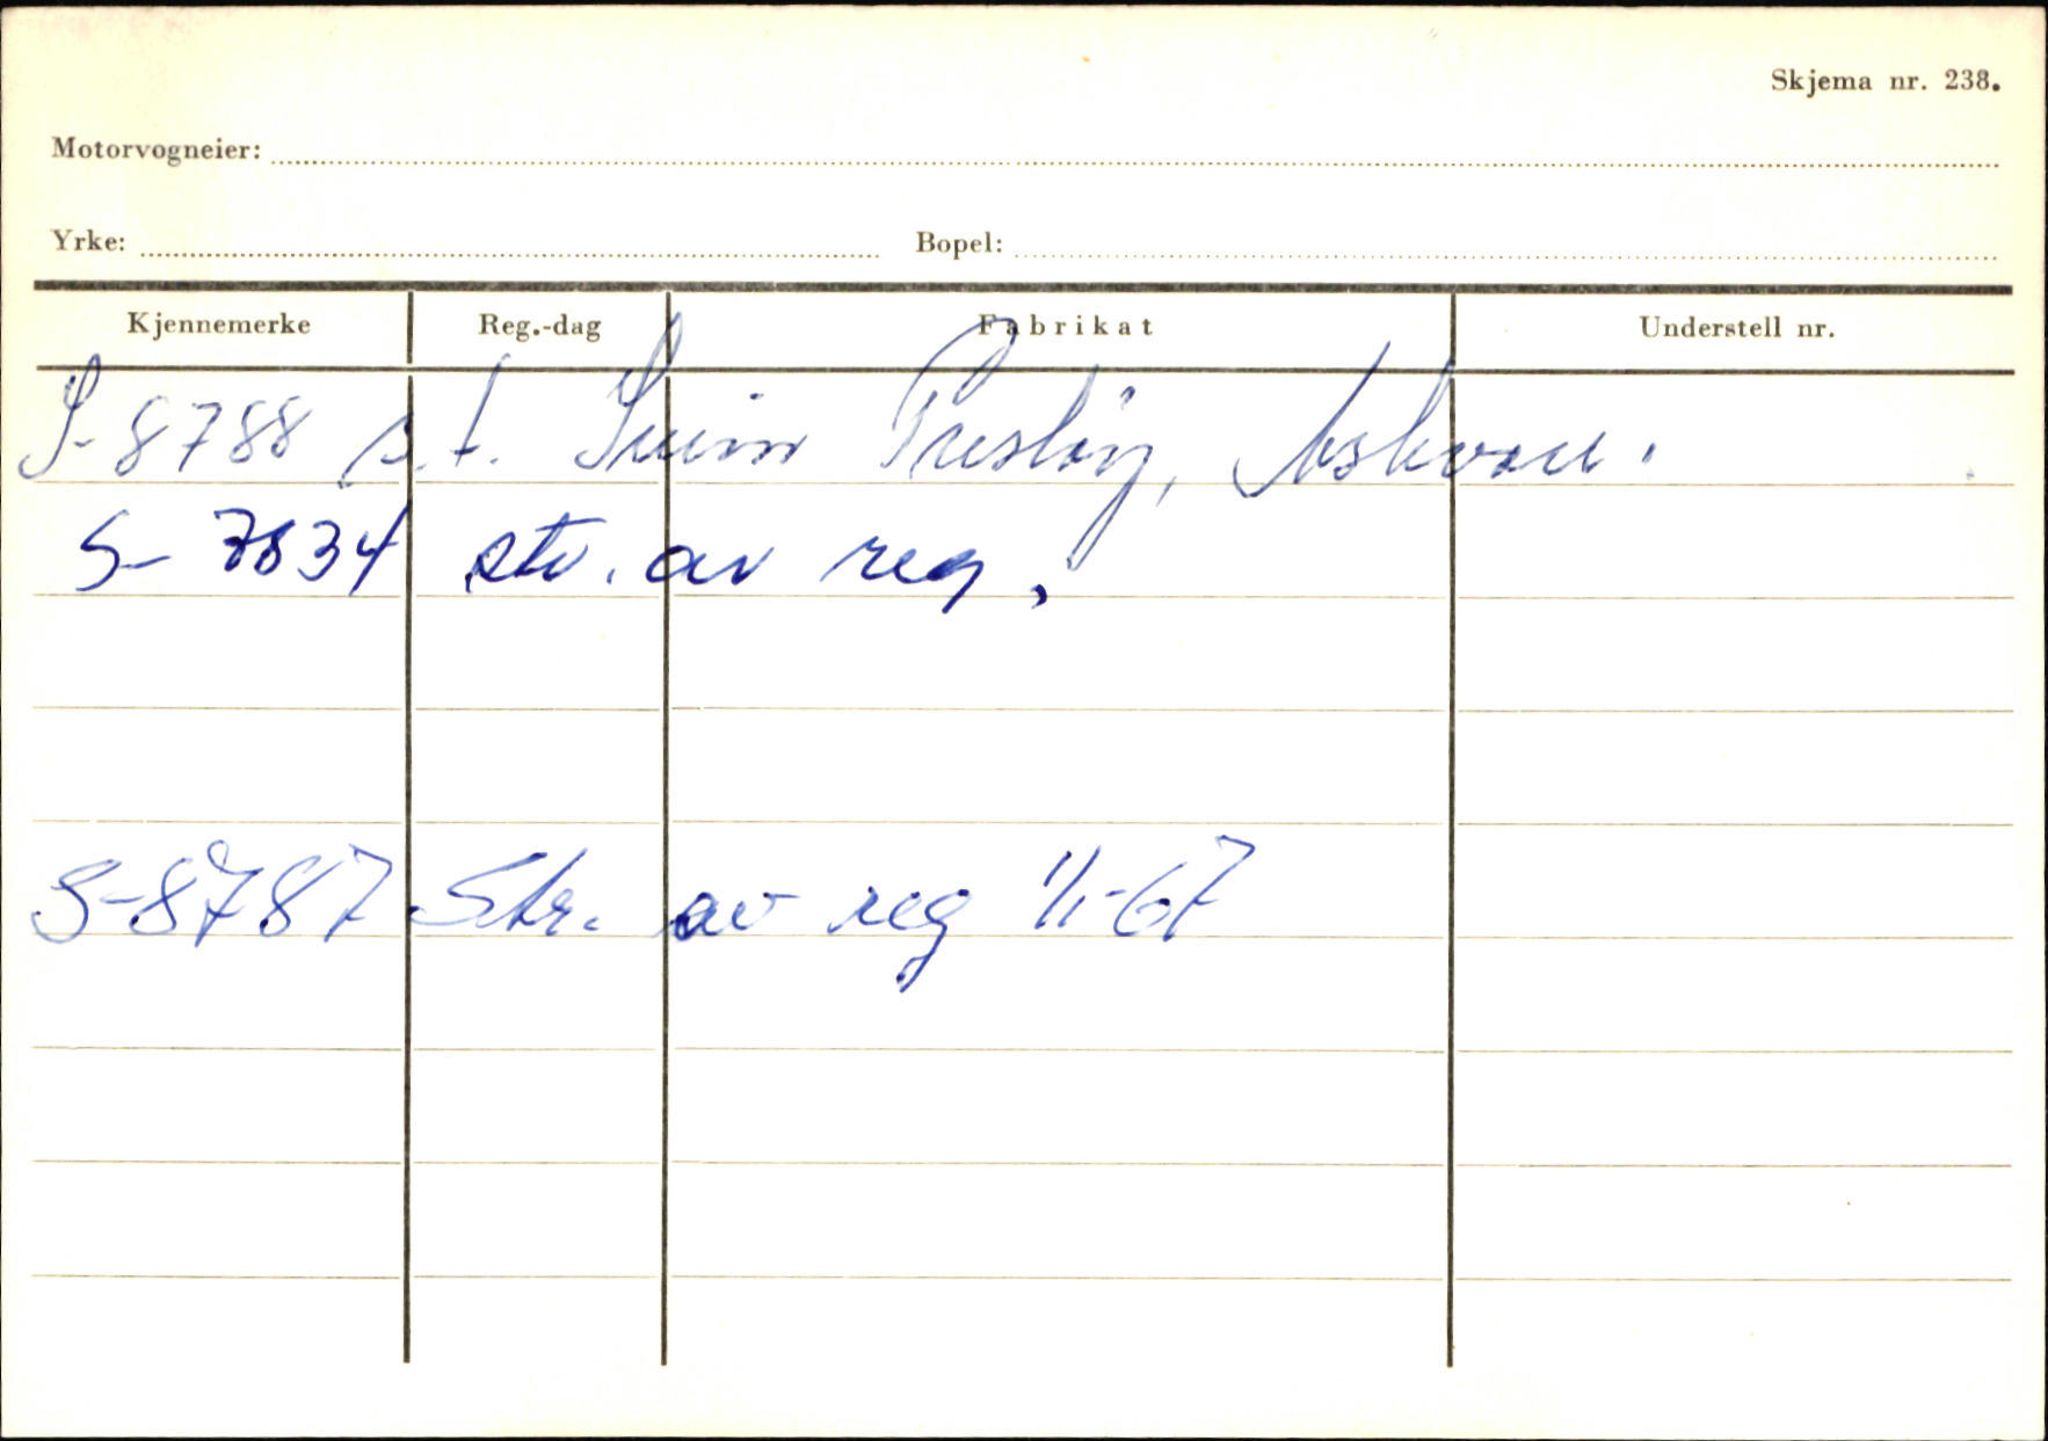 Skjema nr. 238.
Motorvogneier:
Yrke: Bopel:
Kjennemerke Reg.-dag Fabrikat Understell nr.
S-8788 s.t. Askvoll.
S- 7834 str. av reg.
S-8787 Str. av reg 1/1-67